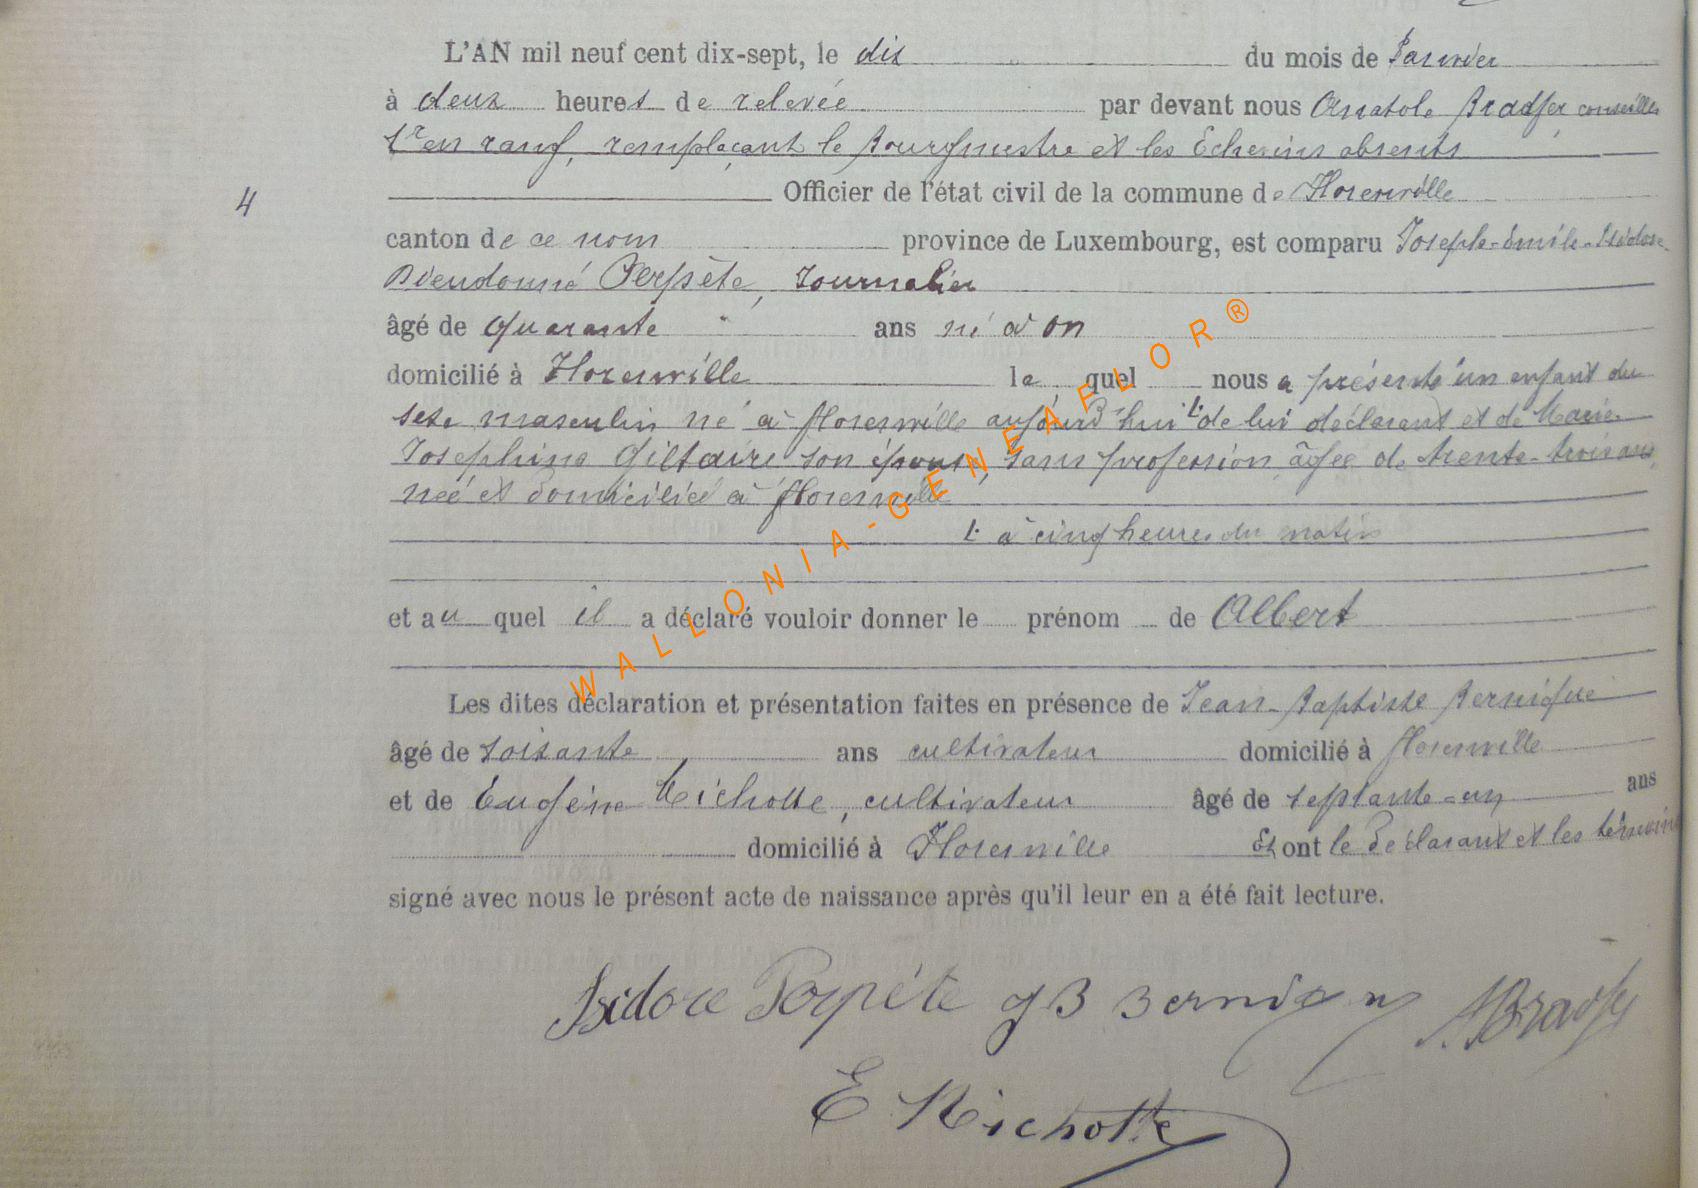 L'AN mil neuf cent dix-sept, le dix du mois de Janvier
à deux heures de relevée par devant nous Anatole Bradfer conseiller
1er en rang, remplaçant le Bourgmestre et les Echevins absents
4 Officier de l'état civil de la commune de Florenville
canton de ce nom province de Luxembourg, est comparu Joseph-Emile-Isidore-
Dieudonné Perpète, Journalier
âgé de quarante ans né à On
domicilié à Florenville le quel nous a présenté un enfant du
sexe masculin né à Florenville aujourd'hui de lui déclarant et de Marie-
Josephine Giltaire son épouse, sans profession âgée de trente-trois ans,
née et domiciliée à Florenville
à cinq heures du matin
et au quel il a déclaré vouloir donner le prénom de Albert
Les dites déclaration et présentation faites en présence de Jean-Baptiste Bernique
âgé de soixante ans cultivateur domicilié à Florenville
et de Eugène Michotte, cultivateur âgé de septante-un ans
domicilié à Florenville Et ont le déclarant et les témoins
signé avec nous le présent acte de naissance après qu'il leur en a été fait lecture.
Isidore Perpète J B Bernique A. Bradfer
E Michotte
WALLONIA-GENEAFLOR®